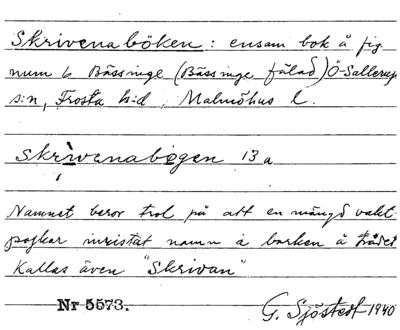 Skrivenaböken: ensam bok å fig.
num 6 Bässinge (Bässinge fälad) Ö-Sallerup
s:n, Frosta h:d, Malmöhus l.
skrivenabogen 13a
Namnet beror trol på att en mängd vakt-
pojkar inristat namn i barken å trädet
Kallas även "Skrivan"
Nr 5573. G. Sjöstedt 1940